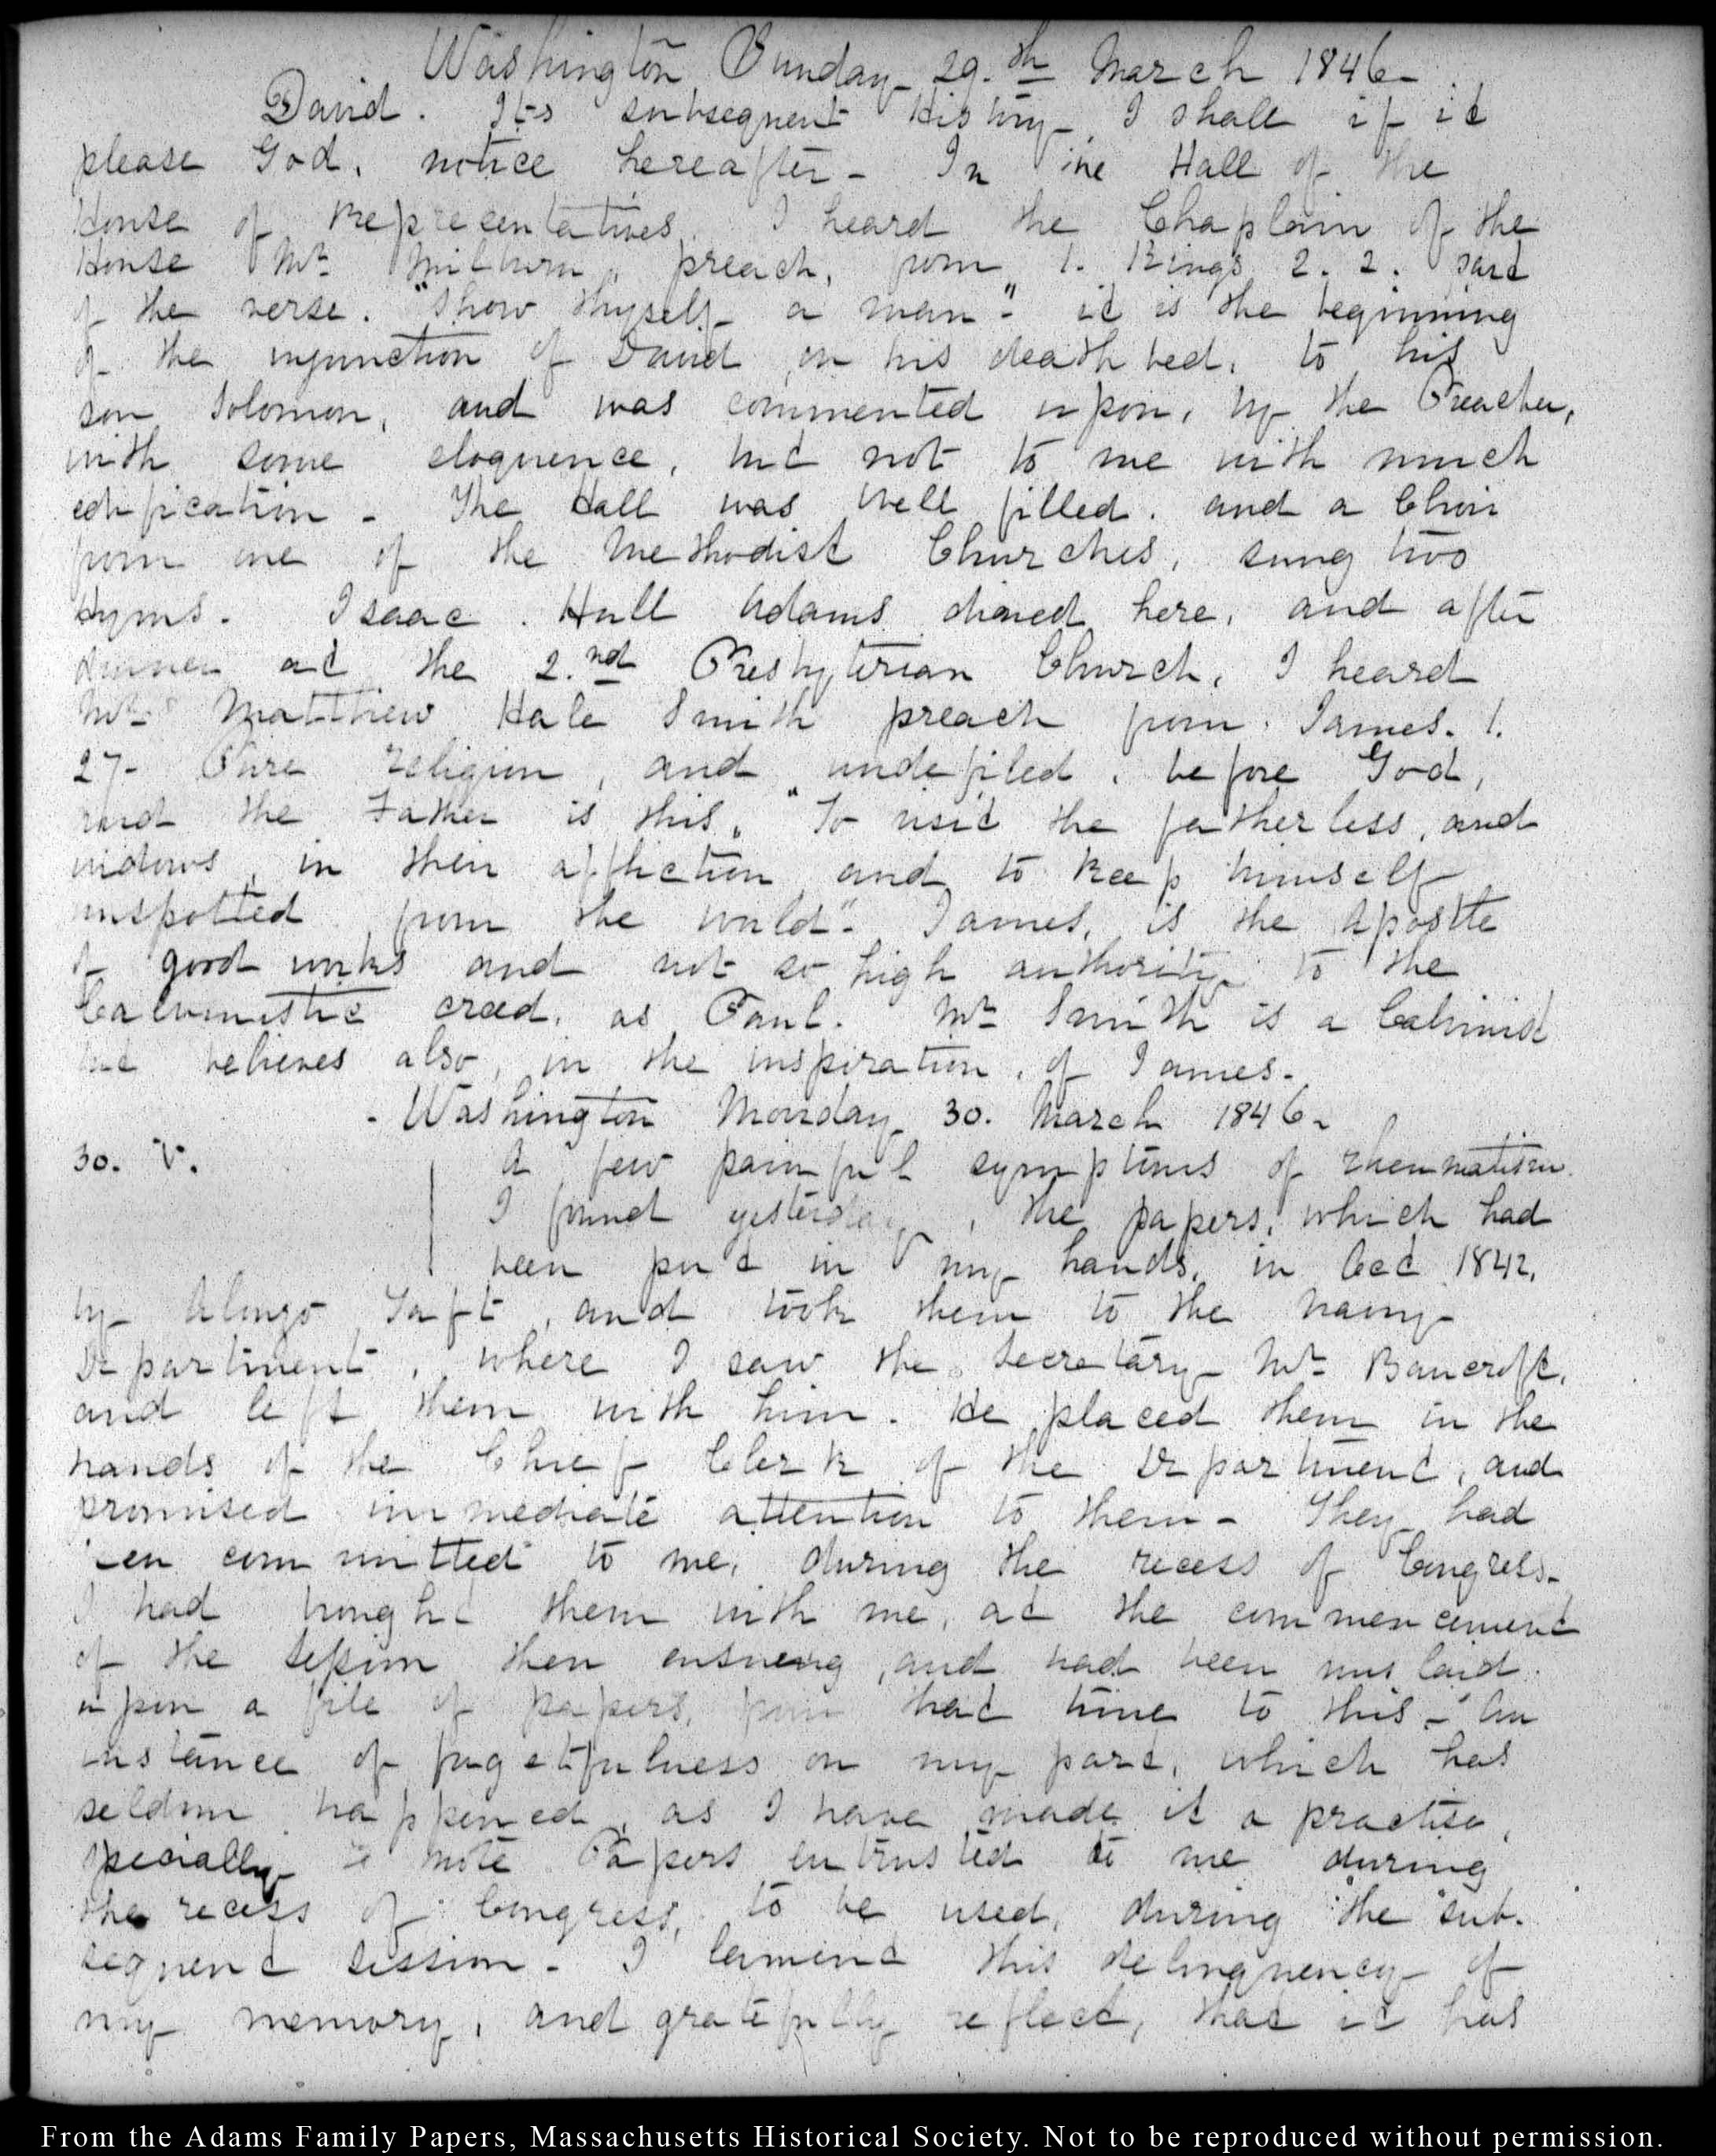 Washington Sunday 29.th March 1846-
David. Its subsequent History, I shall if it
please God, notice hereafter- In the Hall of the
House of Representatives, I heard the Chaplain of the
House Mr Milburn, preach, from 1. Kings 2. 2. part
of the verse. "show thyself a man-" it is the beginning
of the injunction of David on his death bed, to his
son Solomon, and was commented upon, by the Preacher,
with some eloquence, but not to me with much
edification- The Hall was well filled. and a Choir
from one of the Methodist Churches, sung two
Hyms. Isaac. Hull Adams dined here, and after
dinner at the 2.nd Presbyterian Church, I heard
Mr Matthew Hale Smith preach from. James. 1.
27- Pure religion, and undefiled, before God,
and the Father is this, "To visit the fatherless, and
widows, in their affliction and to keep himself
unspotted from the world"- James, is the Apostle
of good works and not so high authority to the
Calvinistic creed, as Paul. Mr Smith is a Calvinist
but believes also, in the inspiration, of James-
- Washington Monday 30. March 1846-
30. V. A few painful symptoms of rheumatism.
I found yesterday, the papers, which had
been put in my hands, in Oct 1842,
by Alonzo Taft, and took them to the Navy-
Department, where I saw the Secretary Mr Bancroft,
and left them with him. He placed them in the
hands of the Chief Clerk of the Department, and
promised immediate attention to them- They had
been committed to me, during the recess of Congress-
I had brought them with me, at the commencement
of the session then ensueing, and had been mis laid
upon a file of papers, from that time to this- An
instance of forgetfulness on my part, which has
seldom happened, as I have made it a practise,
specially to note Papers entrusted to me during
the recess of Congress, to be used, during the sub-
sequent session- I lament this delinquency of
my memory, and gratefully reflect, that it has
From the Adams Family Papers, Massachusetts Historical Society. Not to be reproduced without permission.